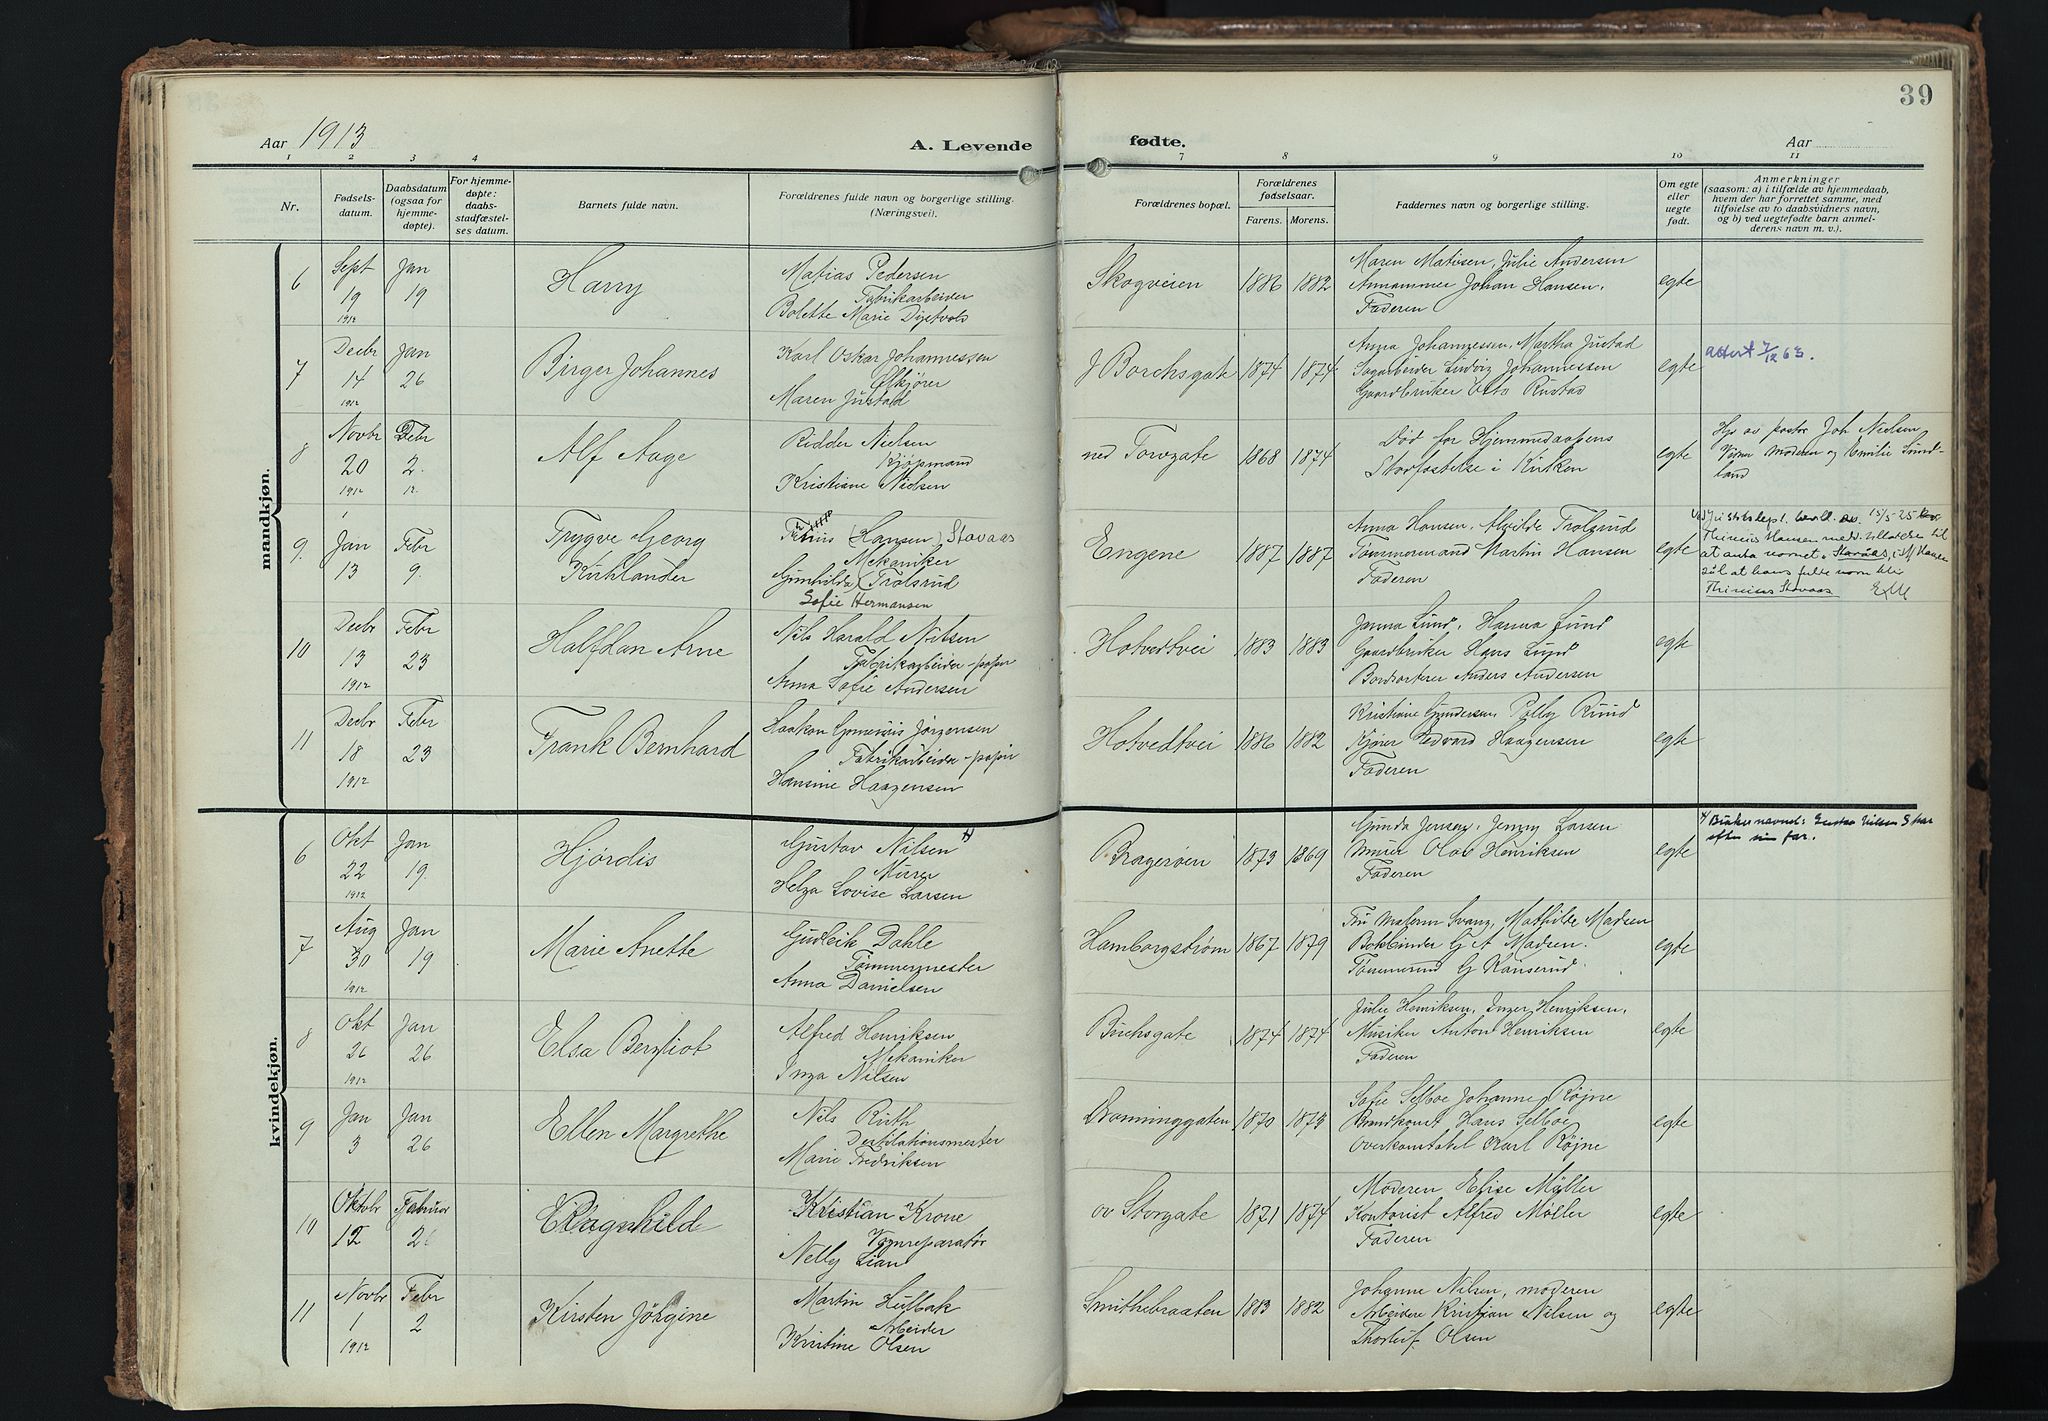 39
Aar 1913
A. Levende fødte.
Aar
1 2 3 4 7 8 9 10 11
Nr.
Fødsels-
datum.
Daabsdatum
(ogsaa for
hjemme-
døpte).
For hjemme-
døpte:
daabs-
stadfæstel-
ses datum.
Barnets fulde navn.
Forældrenes fulde navn og borgerlige stilling.
(Næringsvei).
Forældrenes bopæl.
Forældrenes
fødselsaar.
Farens. Morens.
Faddernes navn og borgerlige stilling.
Om egte
eller
uegte
født.
Anmerkninger
(saasom: a) i tilfælde av hjemmedaab,
hvem der har forrettet samme, med
tilføielse av to daabsvidners navn,
og b) ved uegtefødte barn anmel-
derens navn m. v.).
mandkjøn.
6 Sept 19 1912 Jan 19 Harry
Matias Pedersen
Fabrikarbeider
Bolette Marie
Skogveien 1886 1882
Maren Matisen, Julie Andersen
Johan Hansen,
Faderen
egte
7 Decbr 14 1912 Jan 26 Birger Johannes
Karl Oskar Johannessen
Maren Justad
J Borchsgate 1874 1874
Anna Johannessen, Martha Justad
Sagarbeider Ludvig Johannessen
Gaardbruker Otto Rustad
egte
attest 7/12 63.
8 Novbr 20 1912 Febr 2. 12. Alf Aage
Ridder Nielsen
Kjøpmand
Kristiane Nielsen
ned Torvgate 1868 1874
Død før Hjemmedaapens
Stadfæstelse i Kirken
egte
Hjd av pastor Joh Nielsen
Moderen og Emilie Sund-
land
9. Jan 13 Febr 9. Trygve Georg
Kirklander
(Hansen) Stavaas
Mekaniker
Gunhilda (Trolsrud
Sofie Hermansen
Engene 1887 1887
Anna Hansen, Alvilde Trolsrud
Tømmermand Martin Hansen
Faderen
egte
Ved Justitsdept. bevill. av 15/5-25
Thineius Hansen medd. tilladelse til
at anta navnet Stavaas,
at hans fulde navn bli
Thineius Stavaas
10 Decbr 13 1912 Febr 23 Halfdan Arne
Nils Harald Nilsen
Fabrikarbeider - papir
Anna Sofie Andersen
Hotvedtvei 1883 1883
Janna Lund, Hanna Lund
Gaardbruker Hans Lund
Bordsorterer Anders Andersen
egte
11 Decbr 18 1912 Febr 23 Frank Bernhard
Haakon Jørgensen
Fabrikarbeider - papir
Hansine Haagensen
Hotvedtvei 1886 1882
Kristiane Gundersen, Palley Ruud
Kjører Edvard Haagensen
Faderen
egte
kvindekjøn.
6 Okt 22 1912 Jan 19. Hjørdis
Gustav Nilsen
Murer
Helga Lovise Larsen
Bragerøen 1873 1869
Gunda Jensen, Jenny Larsen
Murer Olaf Henriksen
Faderen
egte
efter sin far.
7 Aug 30 1912 Jan 19 Marie Anette
Gudleik Dahle
Tømmermester
Anna Danielsen
Hamborgstrøm 1867 1879
Mathilde Madsen
Bokbinder G A Madsen.
Tømmermd G Kanserud.
egte
8 Okt 26 1912 Jan 26 Elsa Bergliot
Alfred Henriksen
Mekaniker
Inga Nilsen
Buchsgate 1874 1874
Julie Henriksen, Inger Henriksen,
Musiker Anton Henriksen
Faderen
egte
9 Jan 3 Jan 26 Ellen Margrethe
Nils Ruth
Destilationsmester
Marie Fredriksen
Dronninggaten 1870 1873
Sofie Selboe Johanne Røjne
Brandkonst Hans Selboe
Overkonstabel Karl Røjne
egte
10 Oktobr 12 Februar 2 Ragnhild
Kristian Krone
Vognreparatør
Nelly Lian
ov Storgate 1871 1874
Moderen Elise Møller
Kontorist Alfred Møller
Faderen
egte
11 Novbr 1 1912 Febr 2 Kirsten Jørgine
Martin Hulbak
Arbeider
Kristine Olsen
Smithebraaten 1883 1882
Johanne Nilsen, moderen
Arbeidere Kristian Nilsen og
Thorleif Olsen
egte